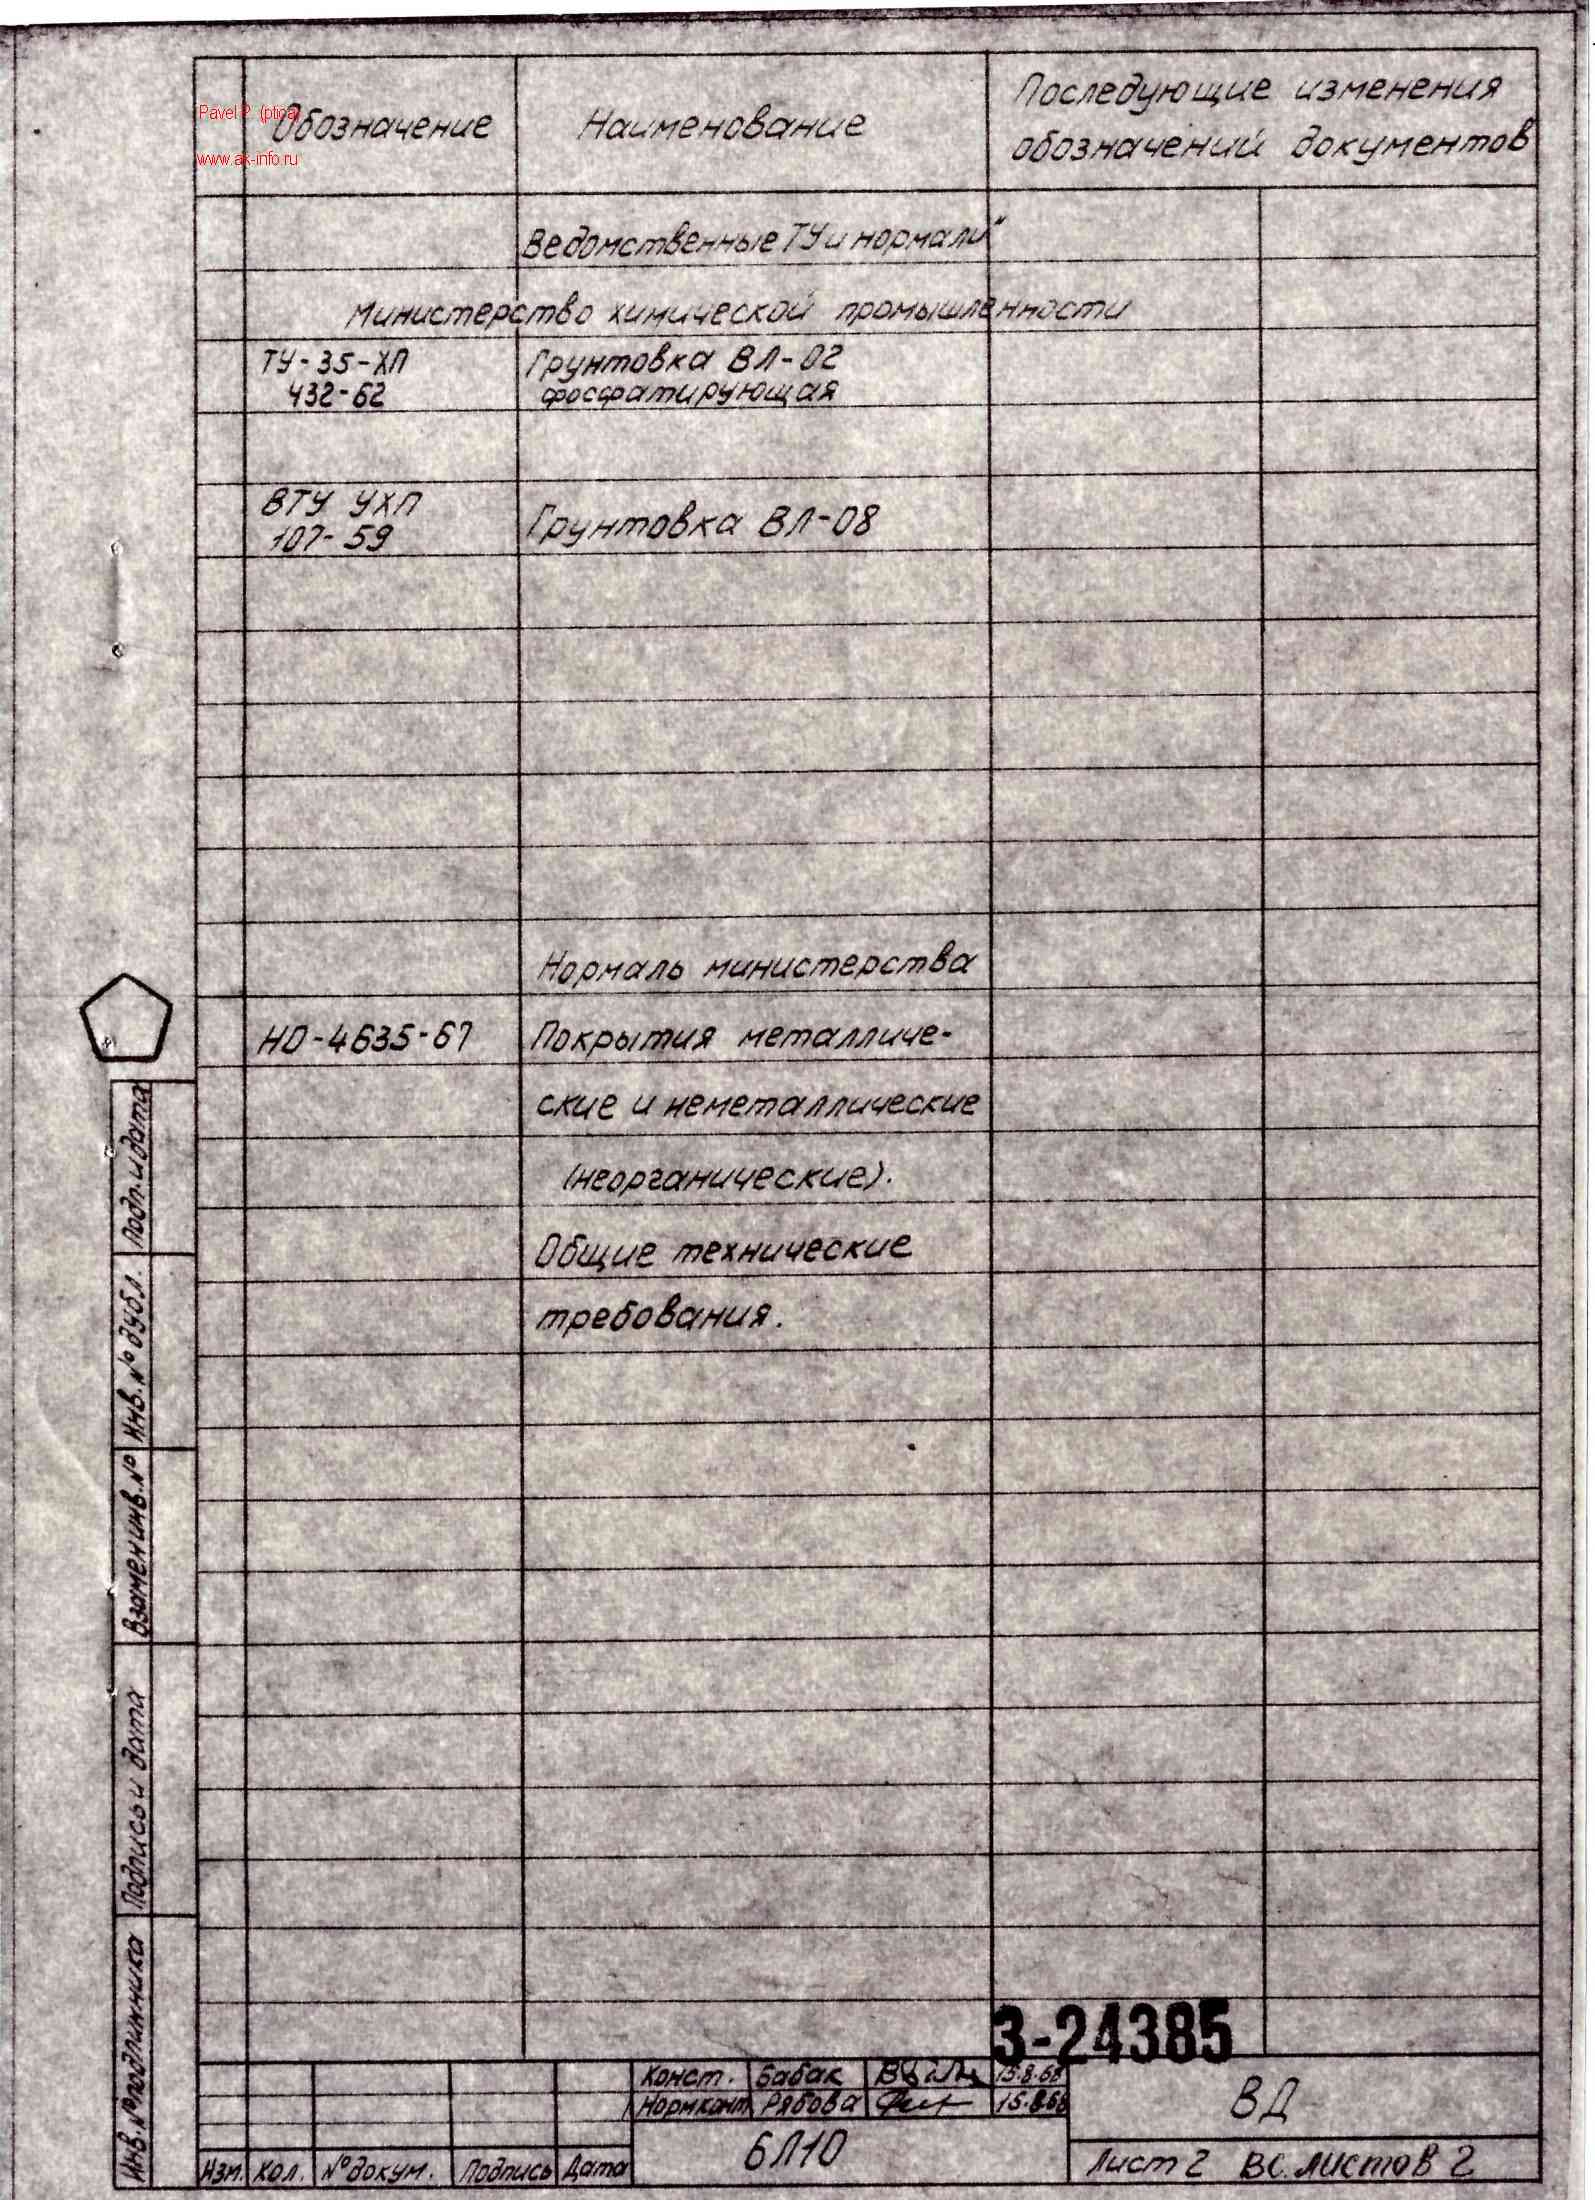 Pavel P. (ptica)
www.ak-info.ru
Обозначение
Наименование
Последующие изменения
обозначений документов
Ведомственные ТУ и нормали"
Министерство химической промышленности
ТУ-35-ХП
432-62
Грунтовка ВЛ-02
фосфатирующая
ВТУ УХП
107-59
Грунтовка ВЛ-08
Нормаль министерства
НО-4635-67
Покрытия металличе-
ские и неметаллические
(неорганические).
Общие технические
требования.
Подп. и дата
Инв. № дубл.
Взамен инв. №
Подпись и дата
Инв. № подлинника
3-24385
Конст. Бабак 15.8.68
Нормконт Рябова 15.8.68
6Л10
ВД
Изм. Кол. № докум. Подпись Дата
Лист 2 Вс. листов 2